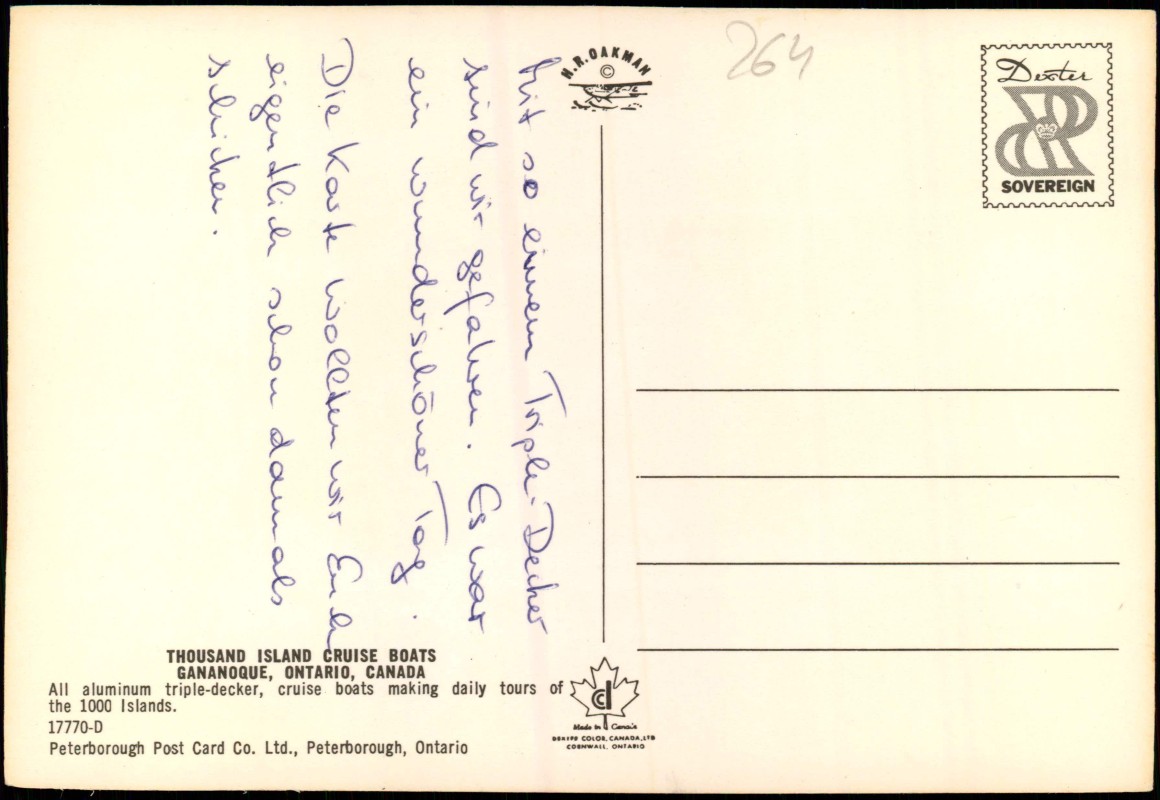 Mit so einem Triple-Decker
sind wir gefahren. Es war
ein wunderschöner Tag.
Die Karte wollten wir Euch
eigentlich schon damals
schicken.
H.R. OAKMAN
©
264
Dexter
SOVEREIGN
THOUSAND ISLAND CRUISE BOATS
GANANOQUE, ONTARIO, CANADA
All aluminum triple-decker, cruise boats making daily tours of
the 1000 Islands.
17770-D
Peterborough Post Card Co. Ltd., Peterborough, Ontario
Made in Canada
DEXTER COLOR, CANADA, LTD
CORNWALL, ONTARIO